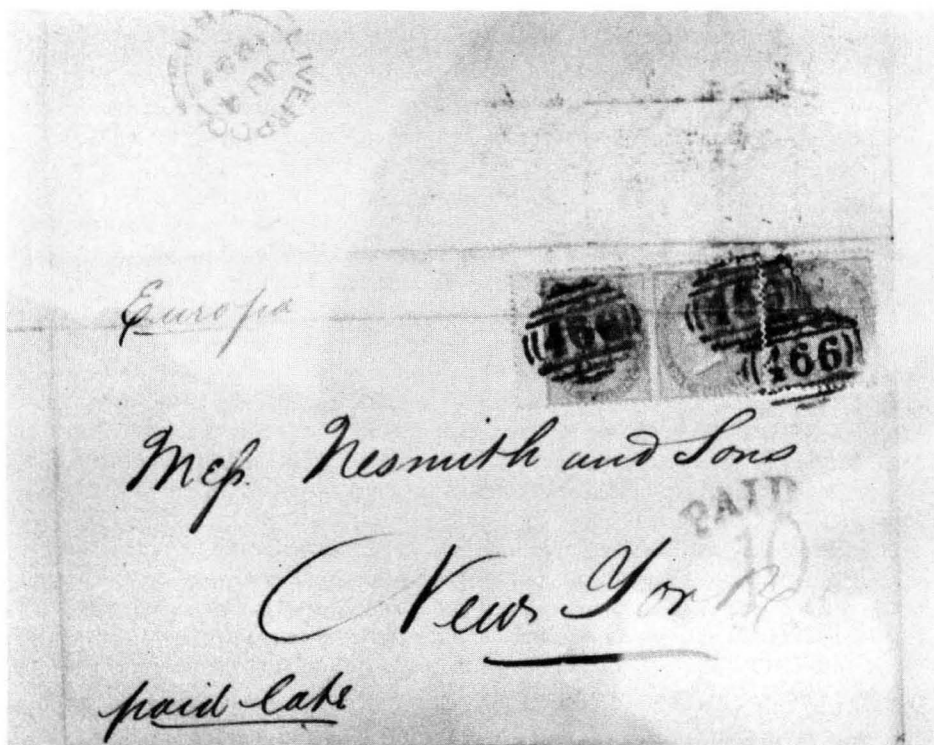 LIVERPOOL
JU 4
Europa
466
466
466
Mess. Nesmith and Sons
PAID
10
New York
paid late